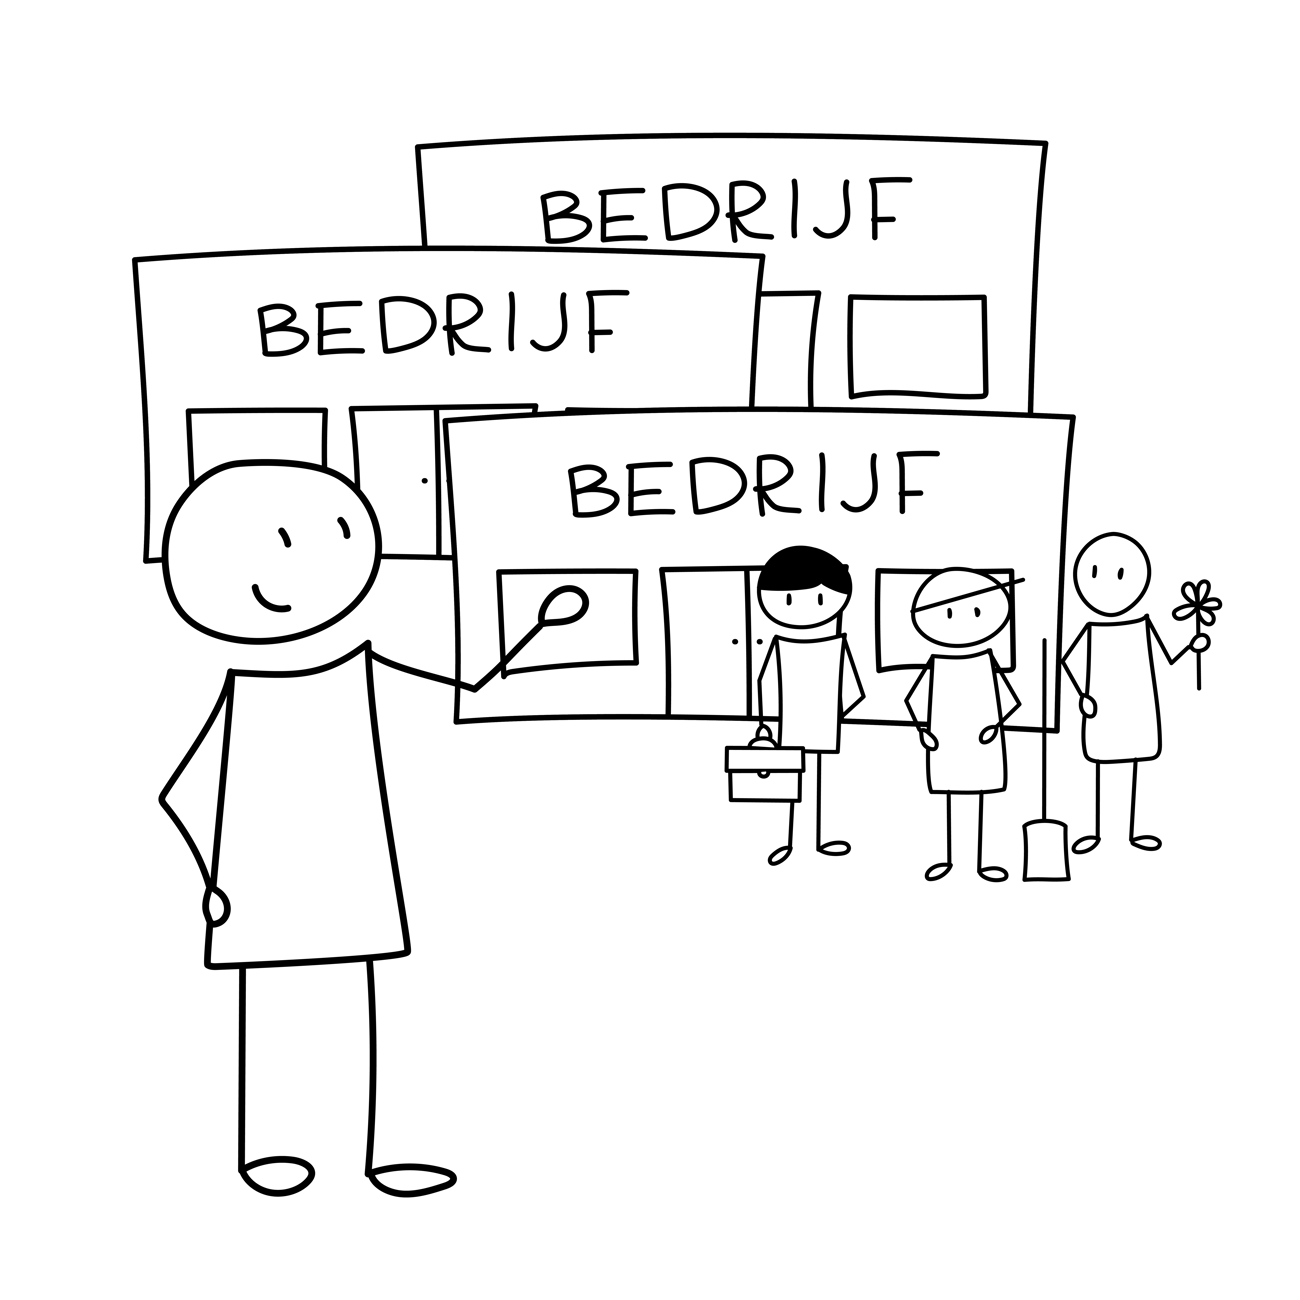 BEDRIJF
BEDRIJF
BEDRIJF